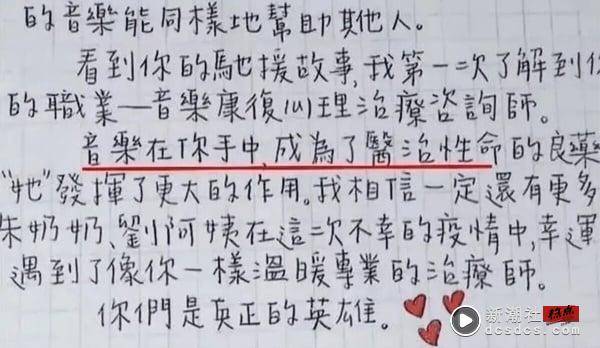 的音樂能同樣地幫助其他人。
看到你的馳援故事,我第一次了解到你
的職業—音樂康復心理治療咨詢師。
音樂在你手中,成為了醫治性命的良藥
"她"發揮了更大的作用。我相信一定還有更多
朱奶奶、劉阿姨在這一次不幸的疫情中,幸運
遇到了像你一樣溫暖專業的治療師。
你們是真正的英雄。
新潮社
dcsdcs.com